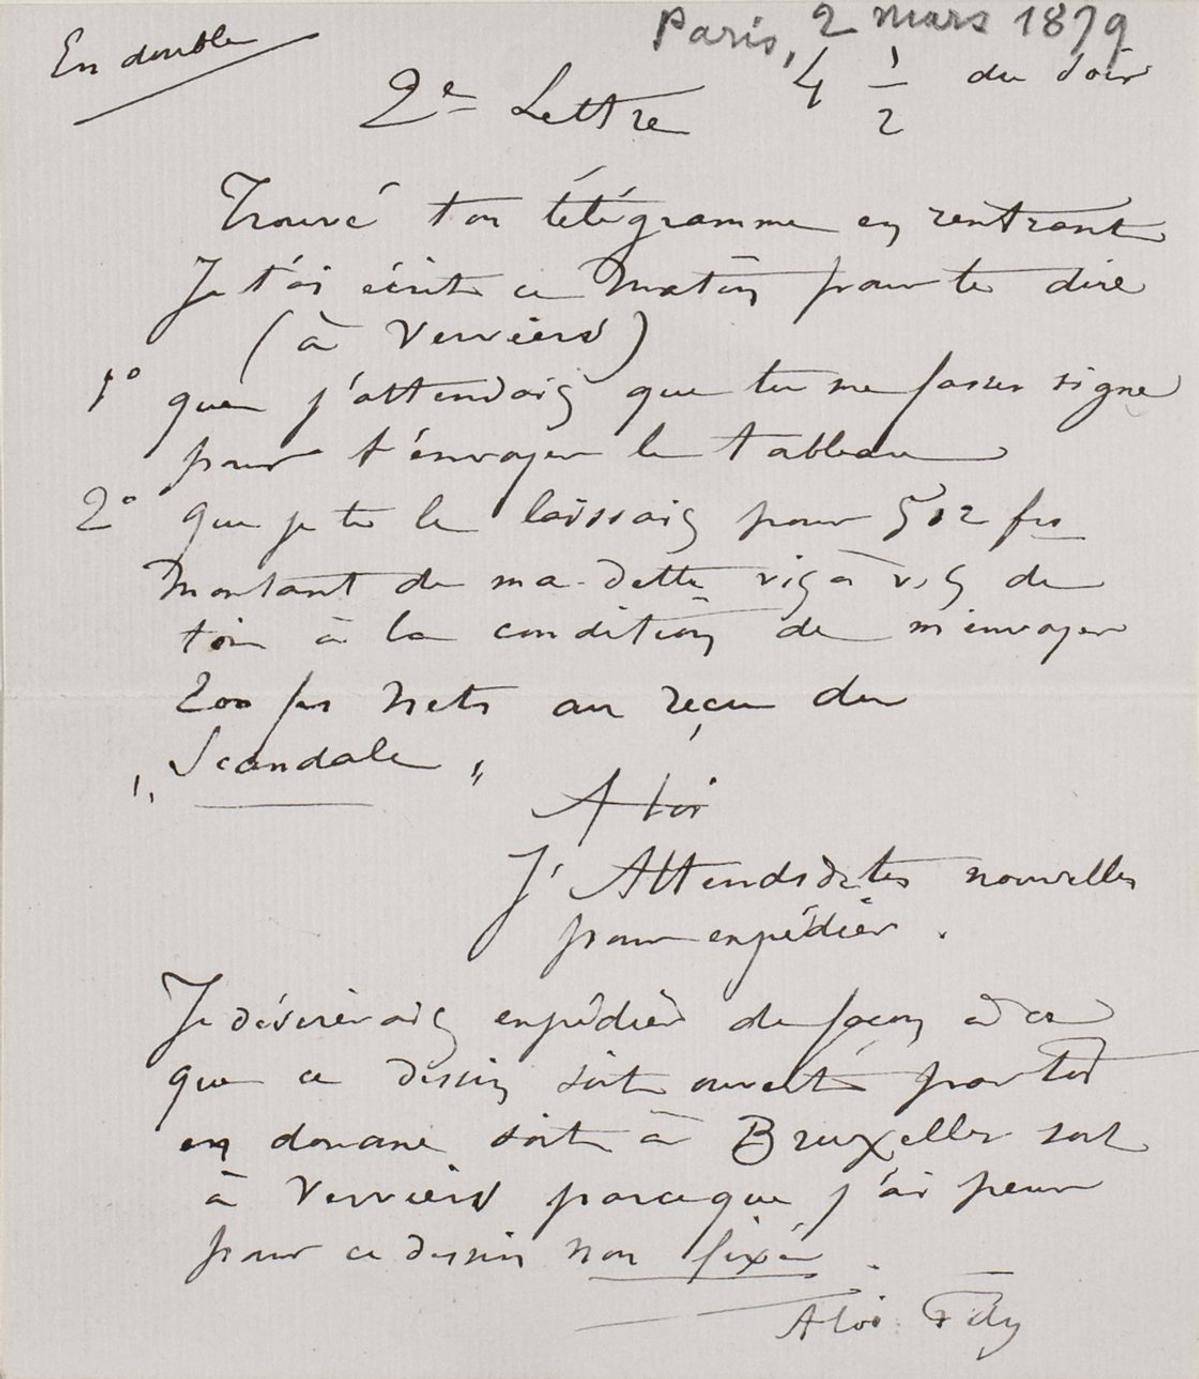 En double
Paris, 2 mars 1879
4 1/2 du soir
2e Lettre
Trouvé ton télégramme en rentrant
Je t'ai écrit ce matin pour te dire
(à Verviers)
1° que j'attendais que tu me fasses signe
pour t'envoyer le tableau
2° que je te le laissais pour 512 frs
montant de ma dette vis à vis de
toi à la condition de m'envoyer
200 frs nets au reçu du
"Scandale"
A toi
J'Attends de tes nouvelles
pour expédier.
Je désirerais expédier de façon à ce
que ce dessin soit ouvert par toi
en douane soit à Bruxelles soit
à Verviers parceque j'ai peur
pour ce dessin non fixé.
A toi Fély